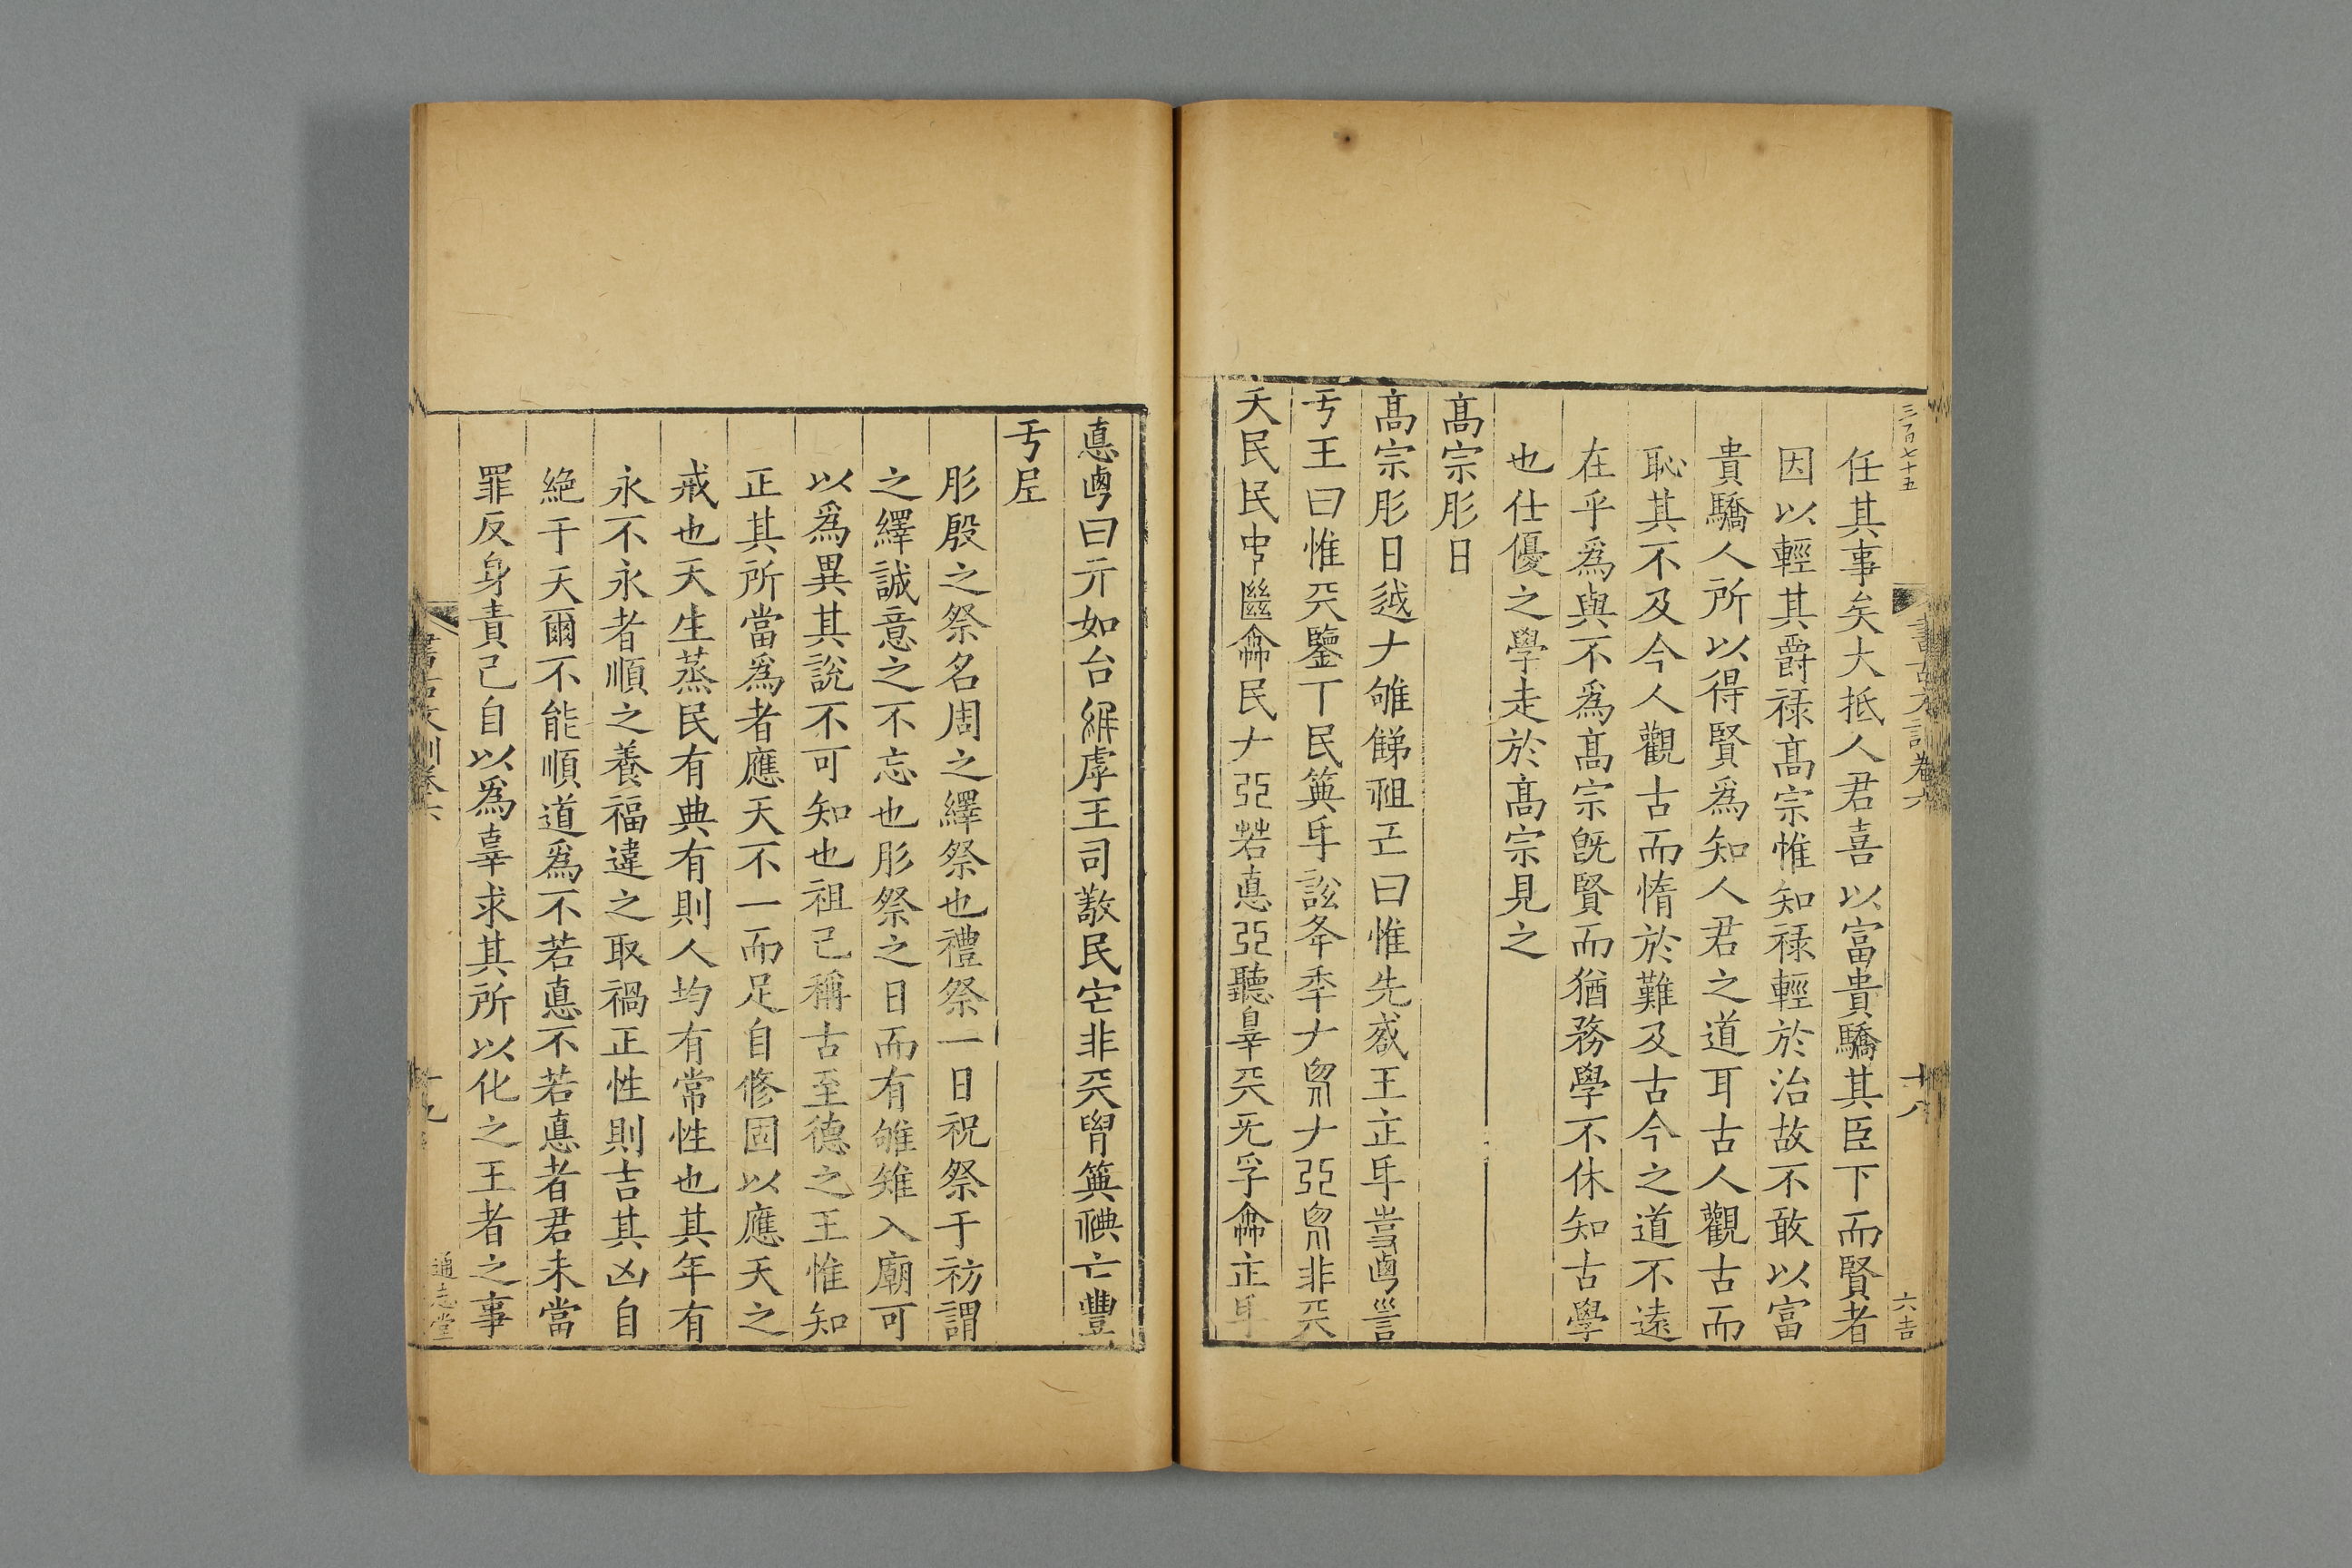 三百七十五
書古文訓卷六
十八
六吉
任其事矣大抵人君喜以富貴驕其臣下而賢者
因以輕其爵禄髙宗惟知禄輕於治故不敢以富
貴驕人所以得賢爲知人君之道耳古人觀古而
恥其不及今人觀古而惰於難及古今之道不遠
在乎爲與不爲髙宗旣賢而猶務學不休知古學
也仕優之學走於髙宗見之
髙宗肜日
髙宗肜日越𠂇雊餙祖𢀒曰惟先王正𠂆𡴎𠧟𧥣
亏王曰惟兲鑒丅民𠂆𠂇非兲
夭民民𠁩民𠂇亞若悳亞聽辠兲旡孚正𠂆
悳𠧟曰亓如台王司民非兲亡豐
亏𡰥
肜殷之祭名周之繹祭也禮祭一日祝祭于祊謂
之繹誠意之不忘也肜祭之日而有雊雉入廟可
以爲異其說不可知也祖己稱古至德之王惟知
正其所當爲者應天不一而足自修固以應天之
戒也天生蒸民有典有則人均有常性也其年有
永不永者順之養福違之取禍正性則吉其凶自
絶于天爾不能順道爲不若悳不若悳者君未當
罪反身責己自以爲辜求其所以化之王者之事
書古文訓卷六
十九
通志堂